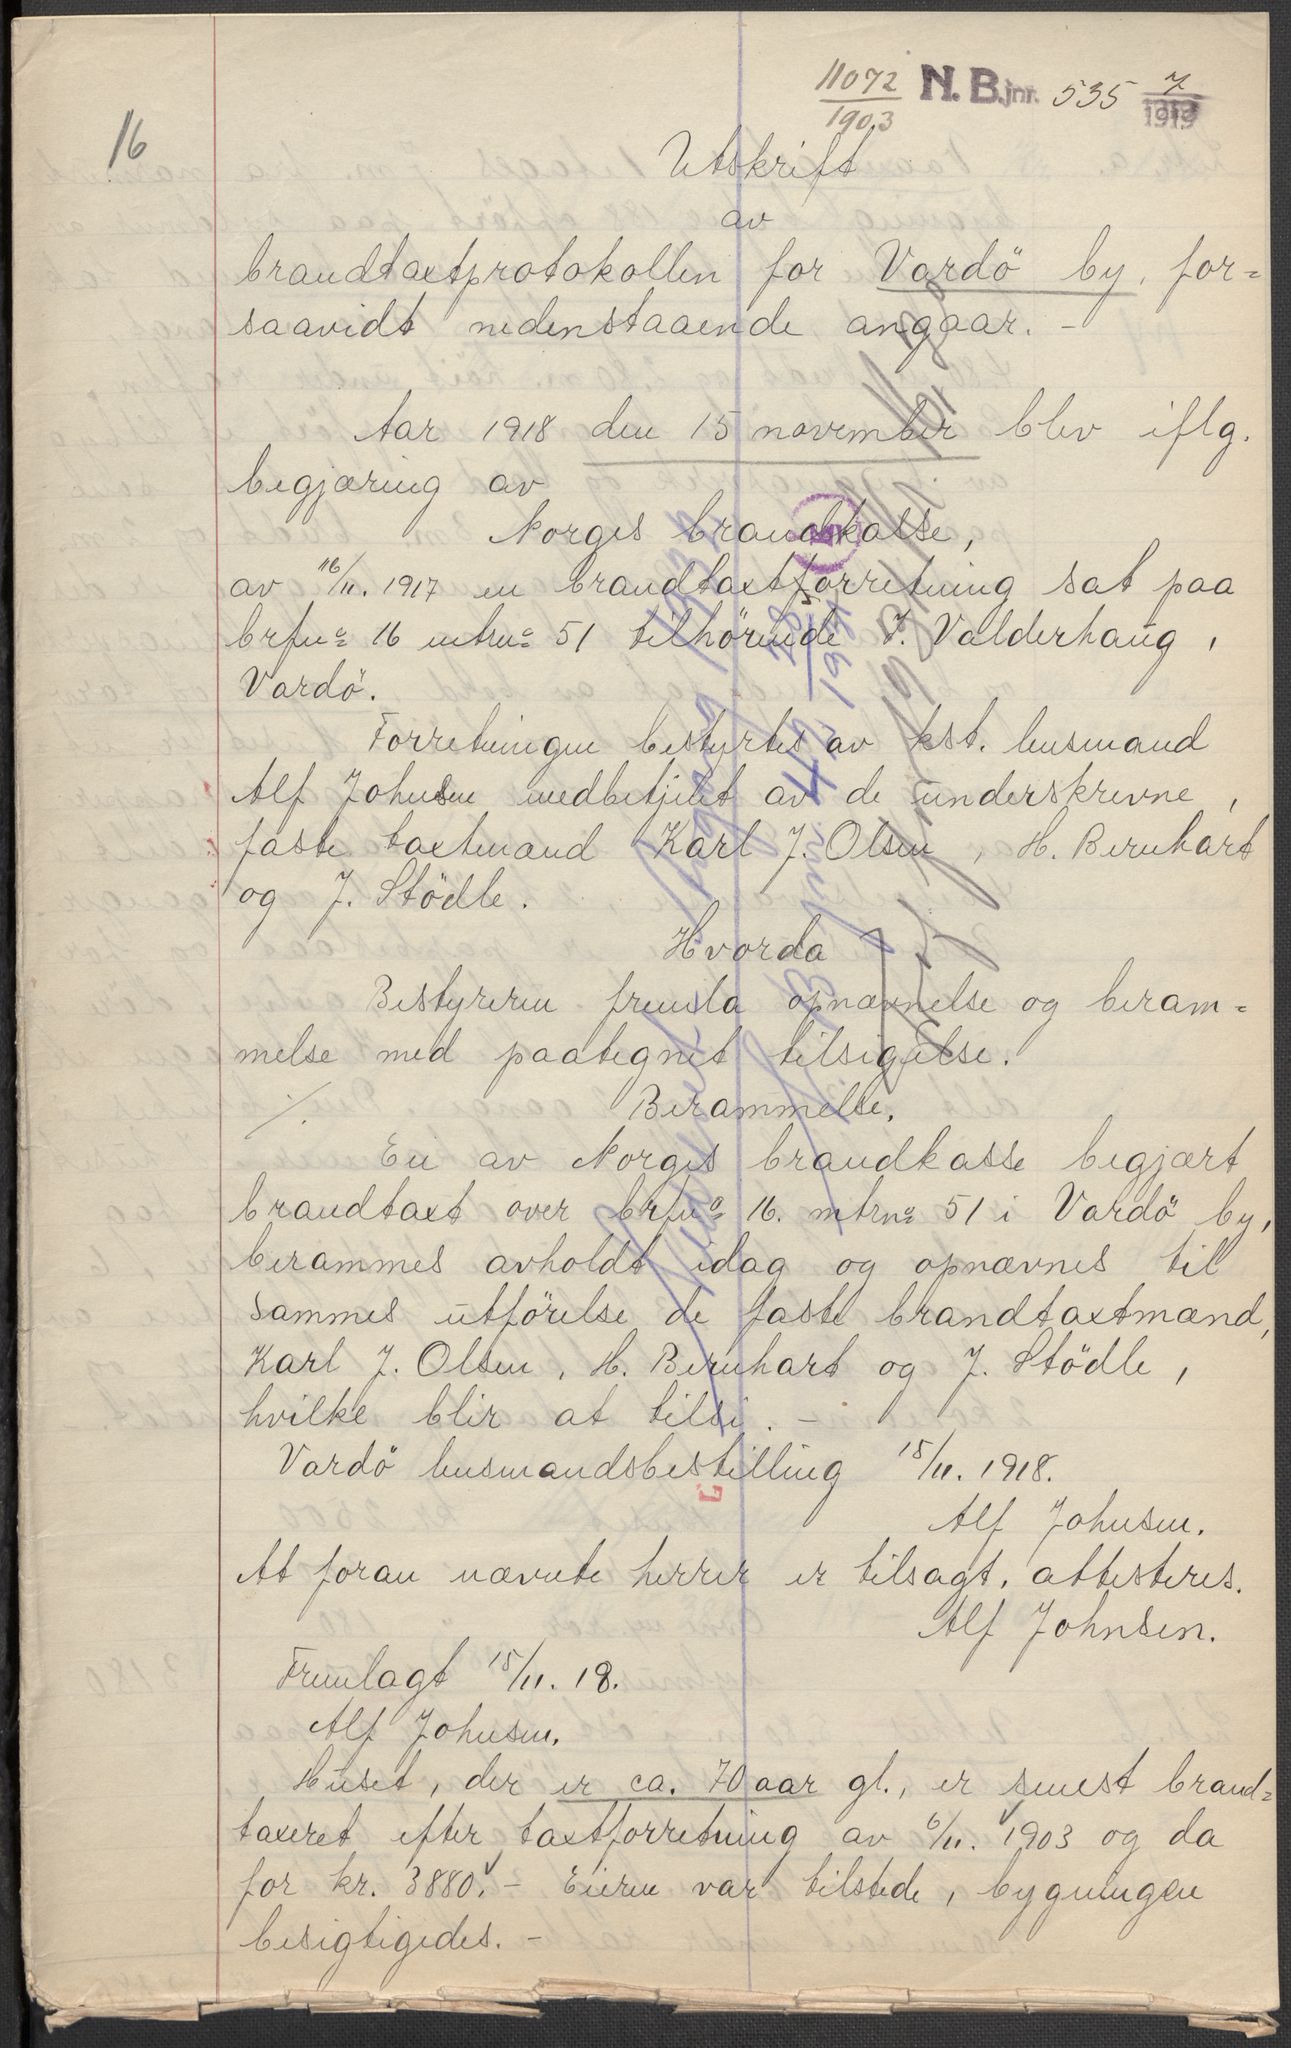 11072
1903
N.B.jnr. 535 7/1919
16
Utskrift
av
brandtaxtprotokollen for Vardö by, for=
saavidt nedenstaaende angaar. -
Aar 1918 den 15 november blev iflg.
begjæring av
Norges brandkasse,
av 16/11. 1917 en brandtaxtforretning sat paa
brfno 16 mtrno 51 tilhörende J. Valderhaug,
Vardö.
Forretningen bestyrtes av kst. lensmand
Alf Johnsen medbetjent av de underskrevne,
faste taxtmænd Karl J. Olsen, H. Bernhart
og J. Stödle.
Hvorda
Bestyreren fremla opnævnelse og beram=
melse med paategnet tilsigelse.
./. Berammelse.
En av Norges brandkasse begjært
brandtaxt over brfno 16. mtrno 51 i Vardö by,
berammes avholdt idag og opnævnes til
sammes utförelse de faste brandtaxtmænd,
Karl J. Olsen, H. Bernhart og J. Stödle,
hvilke blir at tilsi. -
Vardö lensmandsbestilling 15/11. 1918.
Alf Johnsen.
At foran nævnte herrer er tilsagt, attesteres.
Alf Johnsen.
Fremlagt 15/11. 18.
Alf Johnsen.
Huset, der er ca. 70 aar gl., er senest brand=
taxeret efter taxtforretning av 6/11. 1903 og da
for kr. 3880. - Eieren var tilstede, bygningen
besigtigedes. -